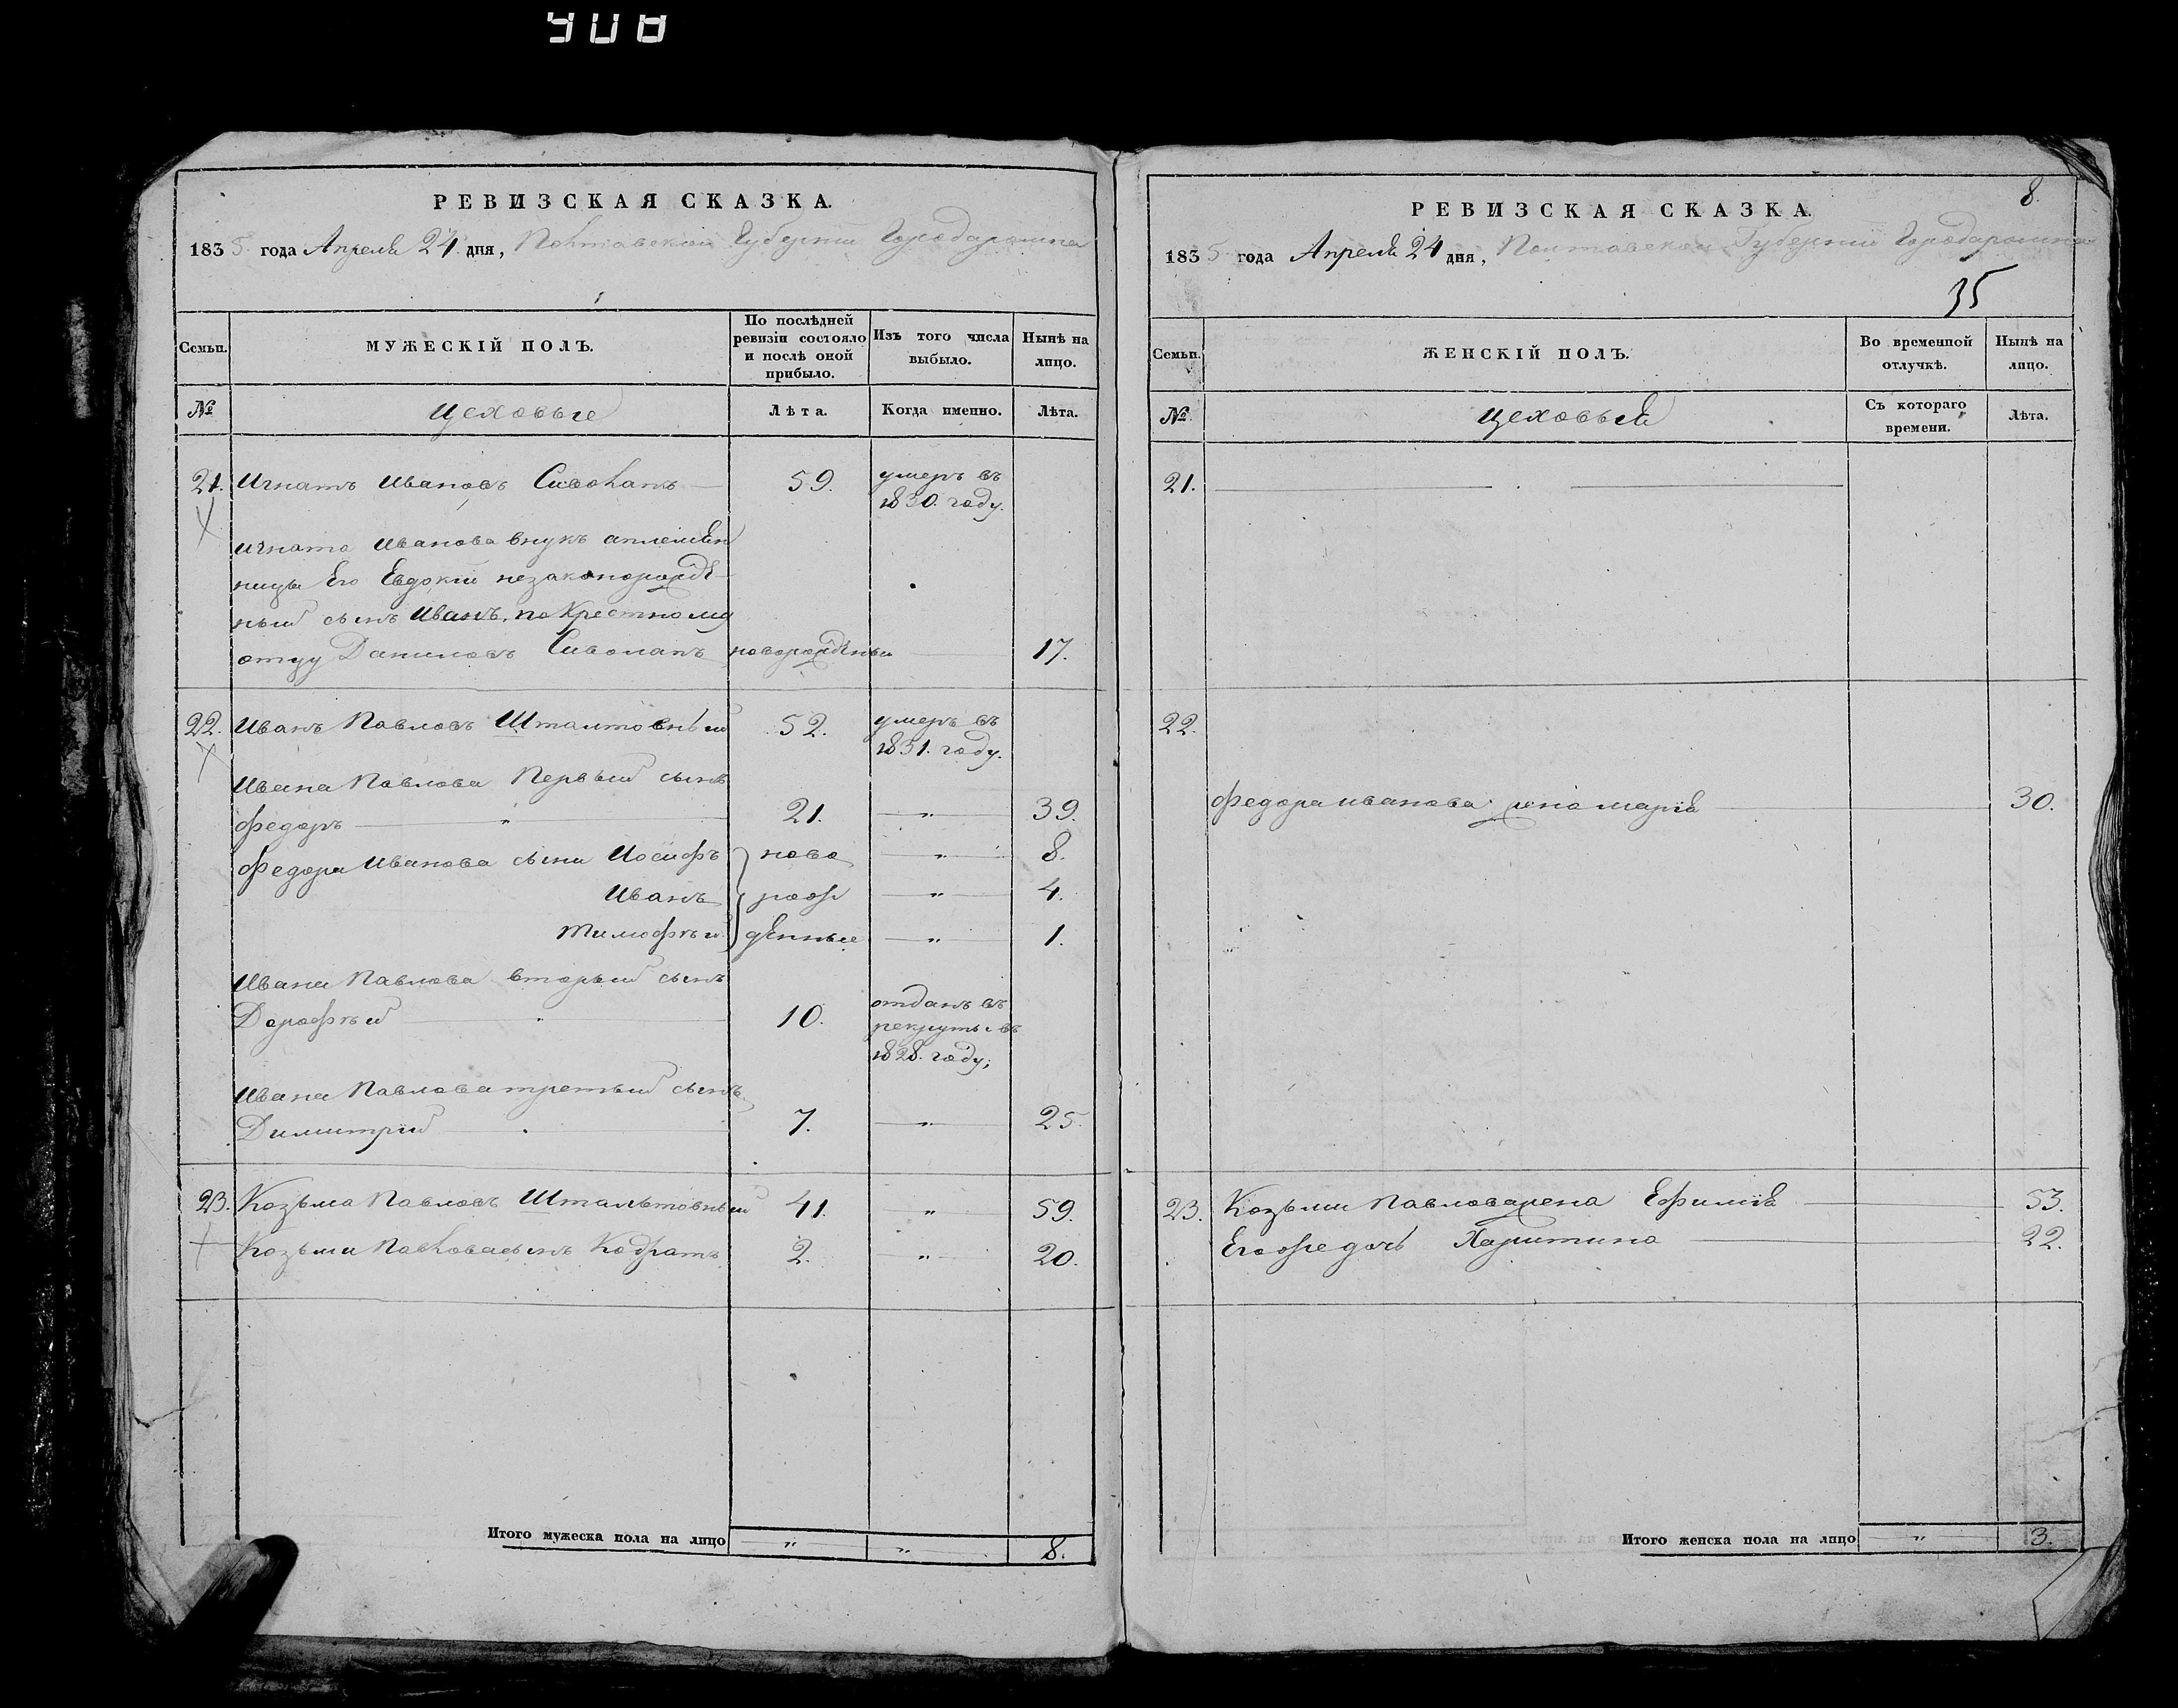 908
РЕВИЗСКАЯ СКАЗКА.
1835. года Апреля 24 дня, Полтавской Губернии Города
МУЖЕСКІЙ ПОЛЪ.
Семьи.
По послѣдней ревизіи состояло и послѣ оной прибыло.
Изъ того числа выбыло.
Нынѣ на лицо.
№
Цеховые
Лѣта.
Когда именно.
Лѣта.
21. Игнатъ Ивановъ Сиволапъ 59. умеръ въ
1830. году.
Игната Иванова внукъ а племян
ницы Его Евдокіи незаконорожде-
ный сынъ Иванъ, по Крестному
отцу Даниловъ Сиволапъ новорожденый 17.
22. Иванъ Павловъ 52. умеръ въ
1831. году.
Ивана Павлова Первый сынъ
Федоръ " 21. " 39.
Федора Иванова сыны Иосифъ ново " 8.
Иванъ рож " 4.
Тимофѣй денные " 1.
Ивана Павлова вторый сынъ
Дорофѣй " 10. отданъ въ
рекруты въ
1828. году;
Ивана Павлова третый сынъ
Димитрий 7. " 25.
23. Козьма Павловъ 41. " 59.
Козьмы Павлова сынъ Кодратъ 2. " 20.
Итого мужеска пола на лицо " " 8.
8.
РЕВИЗСКАЯ СКАЗКА.
1835 года Апреля 24 дня, Полтавской Губернии Города
35
Семьи.
ЖЕНСКІЙ ПОЛЪ.
Во временной отлучкѣ.
Нынѣ на лицо.
№
Цеховыя
Съ котораго времени.
Лѣта.
21.
22.
Федора Иванова жена Марія 30.
23. Козьмы Павлова жена Ефимія 53.
Егоже дочь Харитина 22.
Итого женска пола на лицо " 3.